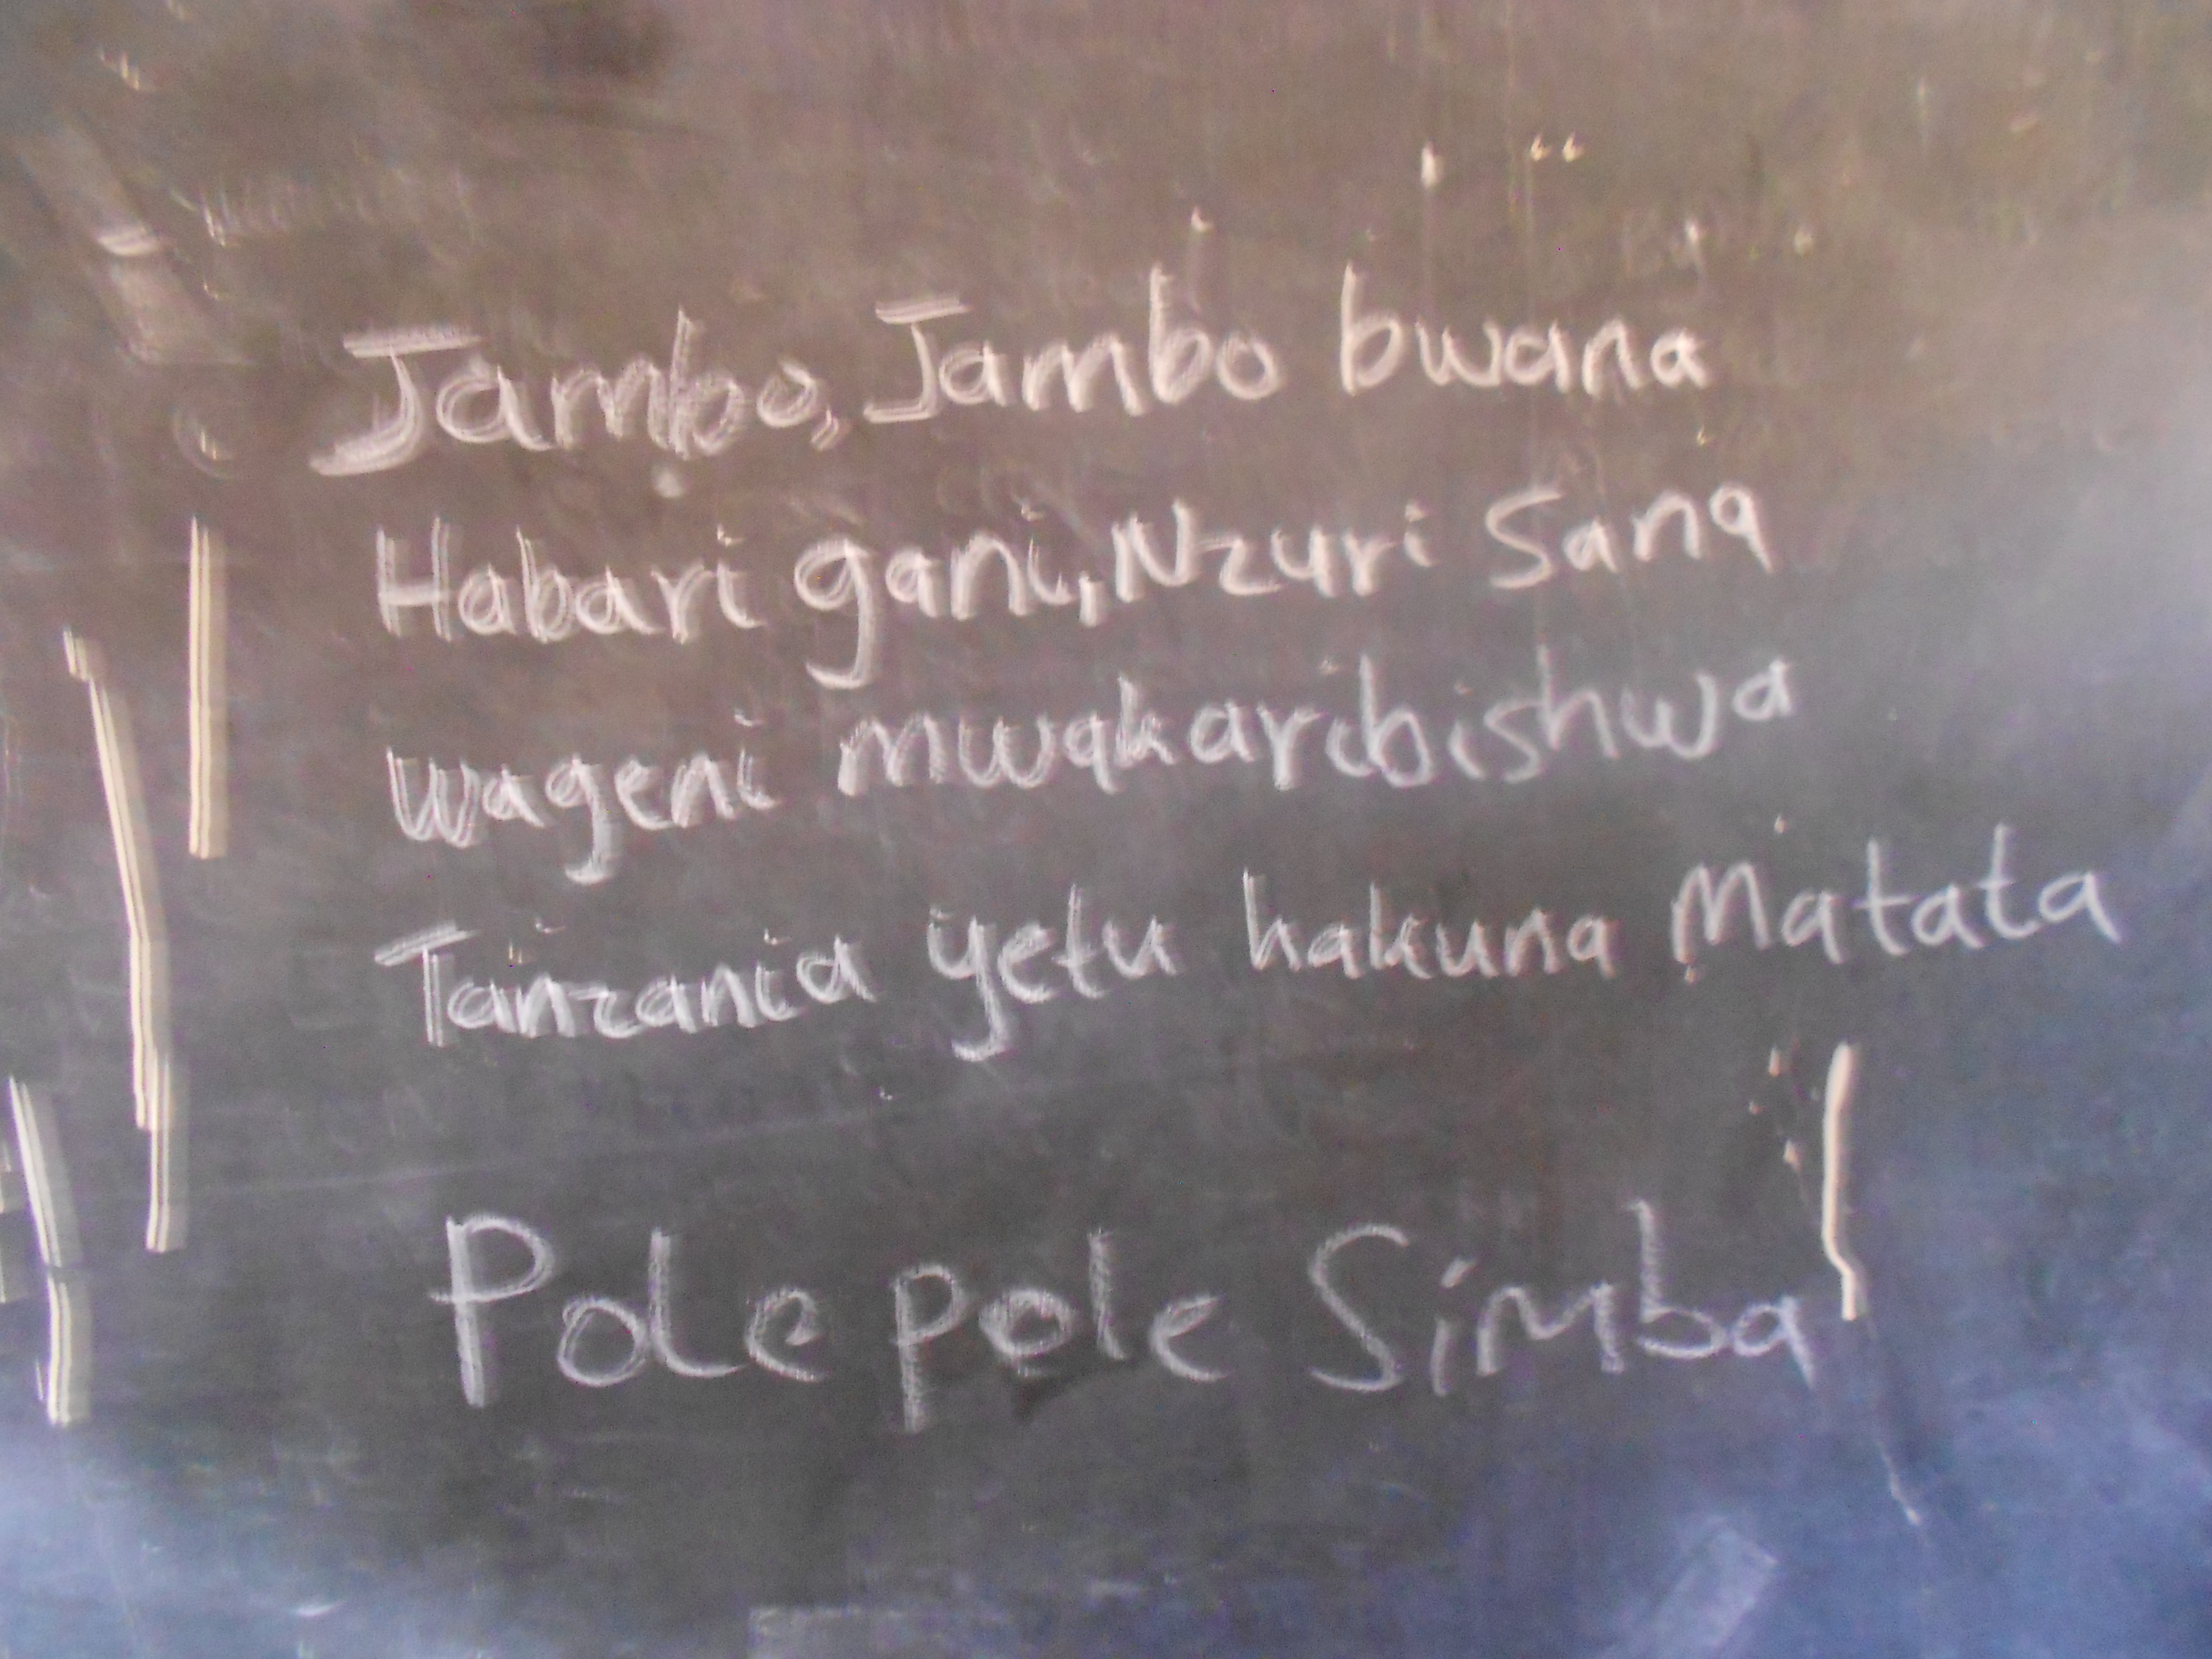 Jambo, Jambo bwana
Habari gani, Nzuri Sana
wageni mwakaribishwa
Tanzania yetu hakuna Matata
Pole pole Simba